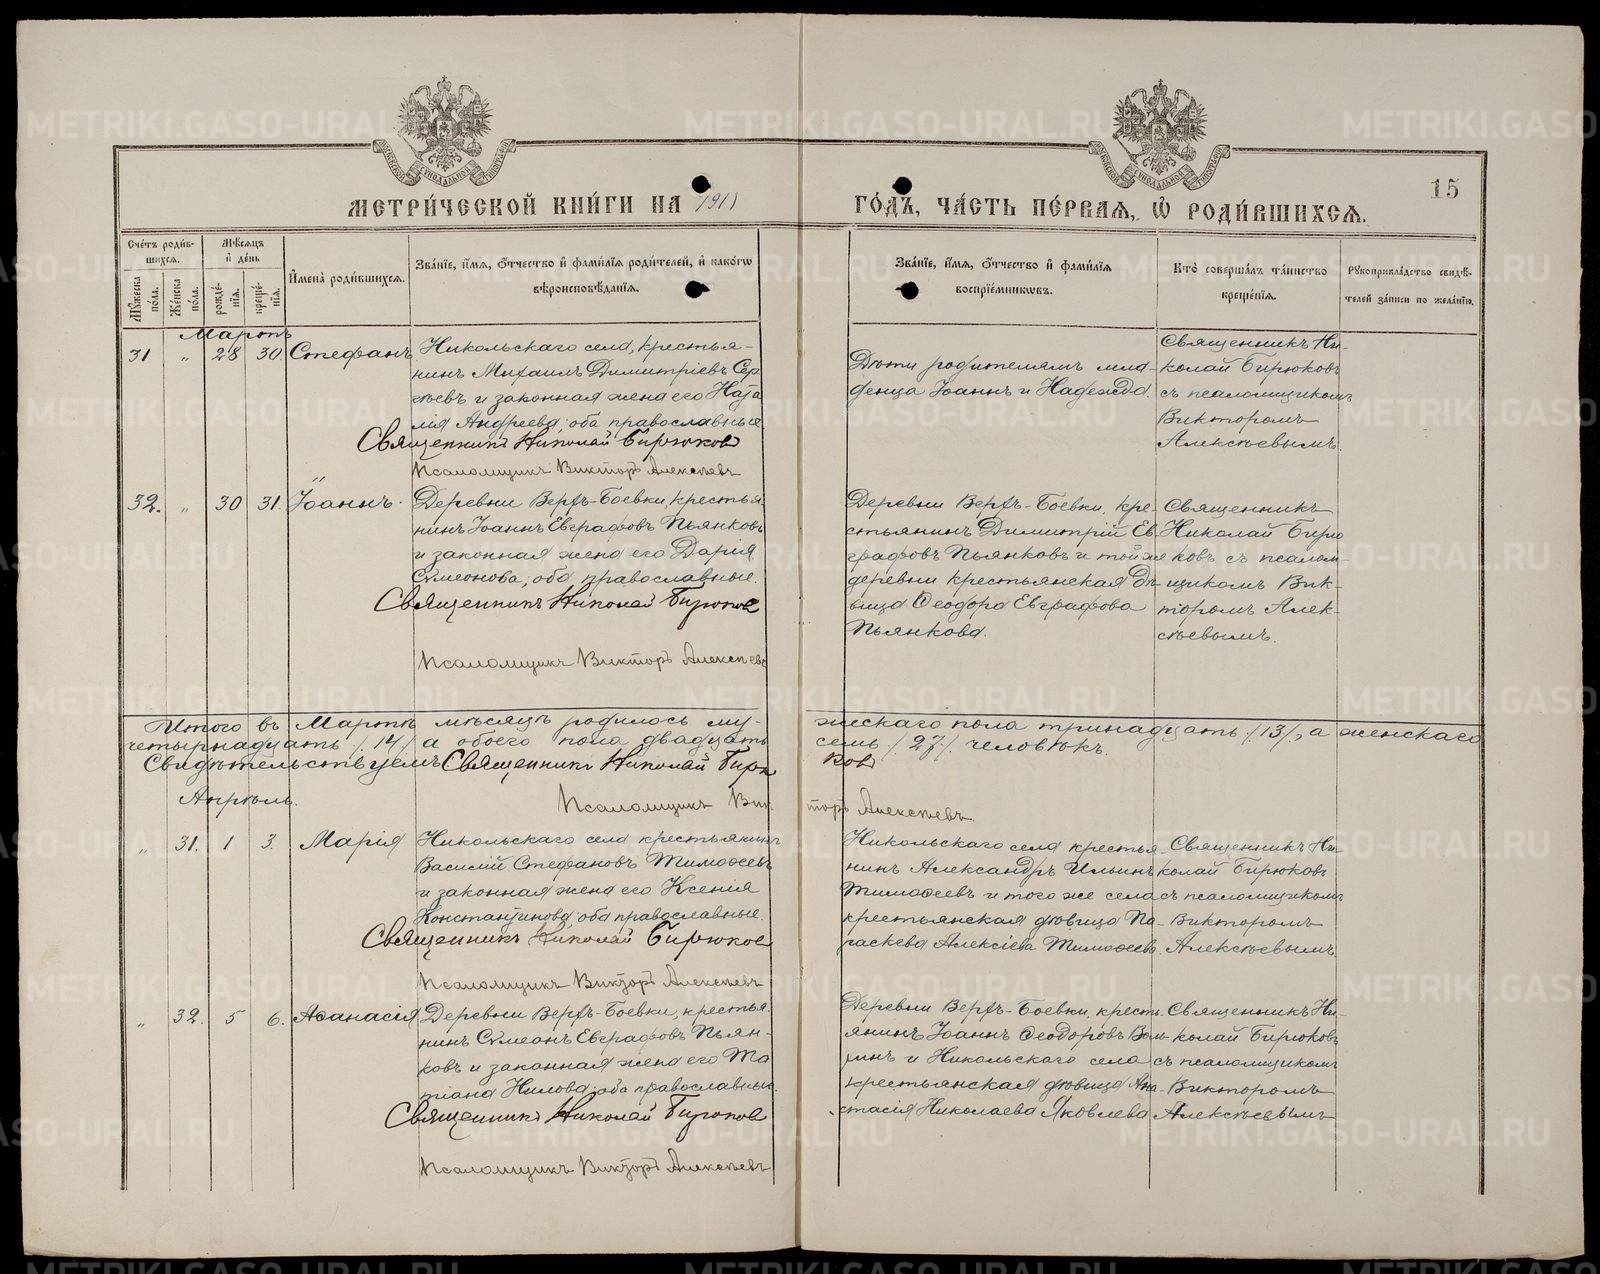 МЕТРИ́ЧЕСКОЙ КНИ́ГИ НА 1911
ГО́ДЪ, ЧА́СТЬ ПЕ́РВАЯ, Ѽ РОДИ́ВШИХСЯ.
15
Сче́тъ роди́в-
шихся.
Мѣ́сяцъ
и҆ де́нь
Мꙋ́жеска
по́ла.
Же́нска
по́ла.
рожде́-
нїѧ.
креще́-
нїѧ.
И҆мена̀ роди́вшихся.
Зва́нїе, и҆́мя, ѻ҆́тчество и҆ фами́лїѧ роди́телей, и҆ како́гѡ
вѣроисповѣ́данїѧ.
Зва́нїе, и҆́мя, ѻ҆́тчество и҆ фами́лїѧ
воспрїе́мникѡвъ.
Кто̀ соверша́лъ та́инство
креще́нїѧ.
Рꙋкоприкла́дство свидѣ́-
телей за́писи по жела́нїю.
Мартъ
31 „ 28 30 Стефанъ
Никольскаго села, крестья-
нинъ Михаилъ Димитріевъ Сер
гѣевъ и законная жена его Ната
лія Андреева; оба православные
Священникъ Николай Бирюковъ
Псаломщикъ Викторъ Алексѣевъ
Дѣти родителямъ мла-
денца Іоаннъ и Надежда.
Священникъ Ни-
колай Бирюковъ
съ псаломщикомъ
Викторомъ
Алексѣевымъ.
32. „ 30 31. Іоаннъ.
Деревни Верхъ-Боевки, крестья
нинъ Іоаннъ Евграфовъ Пьянковъ
и законная жена его Дарія
Сѵмеонова; оба православные.
Священникъ Николай Бирюковъ
Псаломщикъ Викторъ Алексѣевъ
Деревни Верхъ-Боевки, кре-
стьянинъ Димитрій Ев
графовъ Пьянковъ и той же
деревни крестьянская дѣ-
вица Ѳеодора Евграфова
Пьянкова.
Священникъ
Николай Бирю
ковъ съ псалом-
щикомъ Вик-
торомъ Алек-
сѣевымъ.
Итого въ Мартѣ мѣсяцѣ родилось му-
жескаго пола тринадцать /13/, а женскаго
четырнадцать /14/ а обоего пола двадцать
семь /27/ человѣкъ.
Свидѣтельствуемъ Священникъ Николай Бирю
ковъ
Псаломщикъ Вик
торъ Алексѣевъ
Апрѣль.
„ 31. 1 3. Марія
Никольскаго села крестьянинъ
Василій Стефановъ Тимоѳеевъ
и законная жена его Ксенія
Константинова; оба православные.
Священникъ Николай Бирюковъ
Псаломщикъ Викторъ Алексѣевъ
Никольскаго села крестья-
нинъ Александръ Ильинъ
Тимоѳеевъ и того же села
крестьянская дѣвица Па-
раскева Алексіева Тимоѳеева
Священникъ Ни-
колай Бирюковъ
съ псаломщикомъ
Викторомъ
Алексѣевымъ.
„ 32. 5 6. Аѳанасія
Деревни Верхъ-Боевки, крестья
нинъ Сѵмеонъ Евграфовъ Пьян-
ковъ и законная жена его Та
тіана Нилова; оба православные
Священникъ Николай Бирюковъ
Псаломщикъ Викторъ Алексѣевъ
Деревни Верхъ-Боевки, кресть
янинъ Іоаннъ Ѳеодоровъ
и Никольскаго села
крестьянская дѣвица Ана-
стасія Николаева Яковлева
Священникъ Ни-
колай Бирюковъ
съ псаломщикомъ
Викторомъ
Алексѣевымъ
METRIKI.GASO-URAL.RU